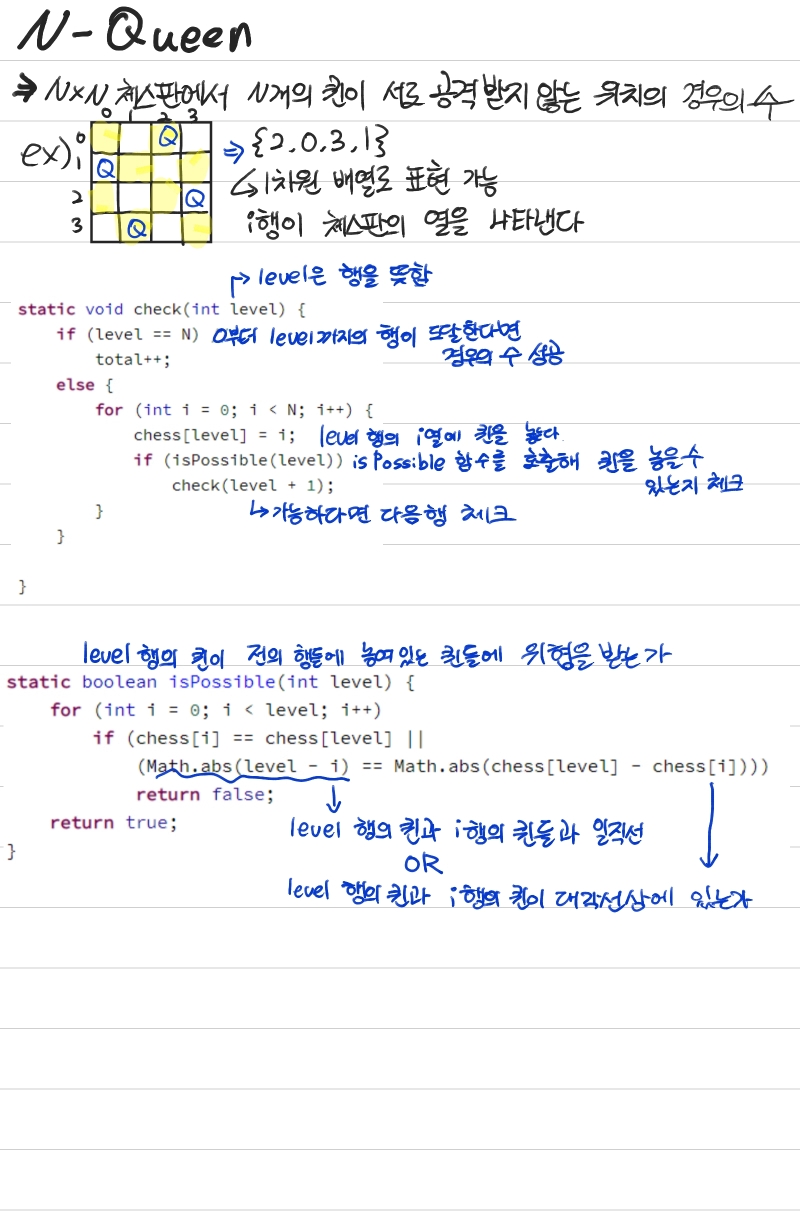 N-Queen
⇒ N×N 체스판에서 N개의 퀸이 서로 공격 받지 않는 위치의 경우의 수
0 1 2 3
ex) 0 Q ⇒ {2,0,3,1}
1 Q ↳ 1차원 배열로 표현 가능
2 Q
3 Q i행이 체스판의 열을 나타낸다
↱ level은 행을 뜻함
static void check(int level) {
if (level == N) 0부터 level까지의 행이 또달한다면
total++; 경우의 수 성공
else {
for (int i = 0; i < N; i++) {
chess[level] = i; level 행의 i열에 퀸을 놓다
if (isPossible(level)) isPossible 함수를 호출해 퀸을 놓을 수
check(level + 1); 있는지 체크
} ↳ 가능하다면 다음행 체크
}
}
level 행의 퀸이 전의 행들에 놓여있는 퀸들에 위협을 받는가
static boolean isPossible(int level) {
for (int i = 0; i < level; i++)
if (chess[i] == chess[level] ||
(Math.abs(level - i) == Math.abs(chess[level] - chess[i])))
return false;
return true;
level 행의 퀸과 i행의 퀸들과 일직선
}
OR
level 행의 퀸과 i행의 퀸이 대각선상에 있는가